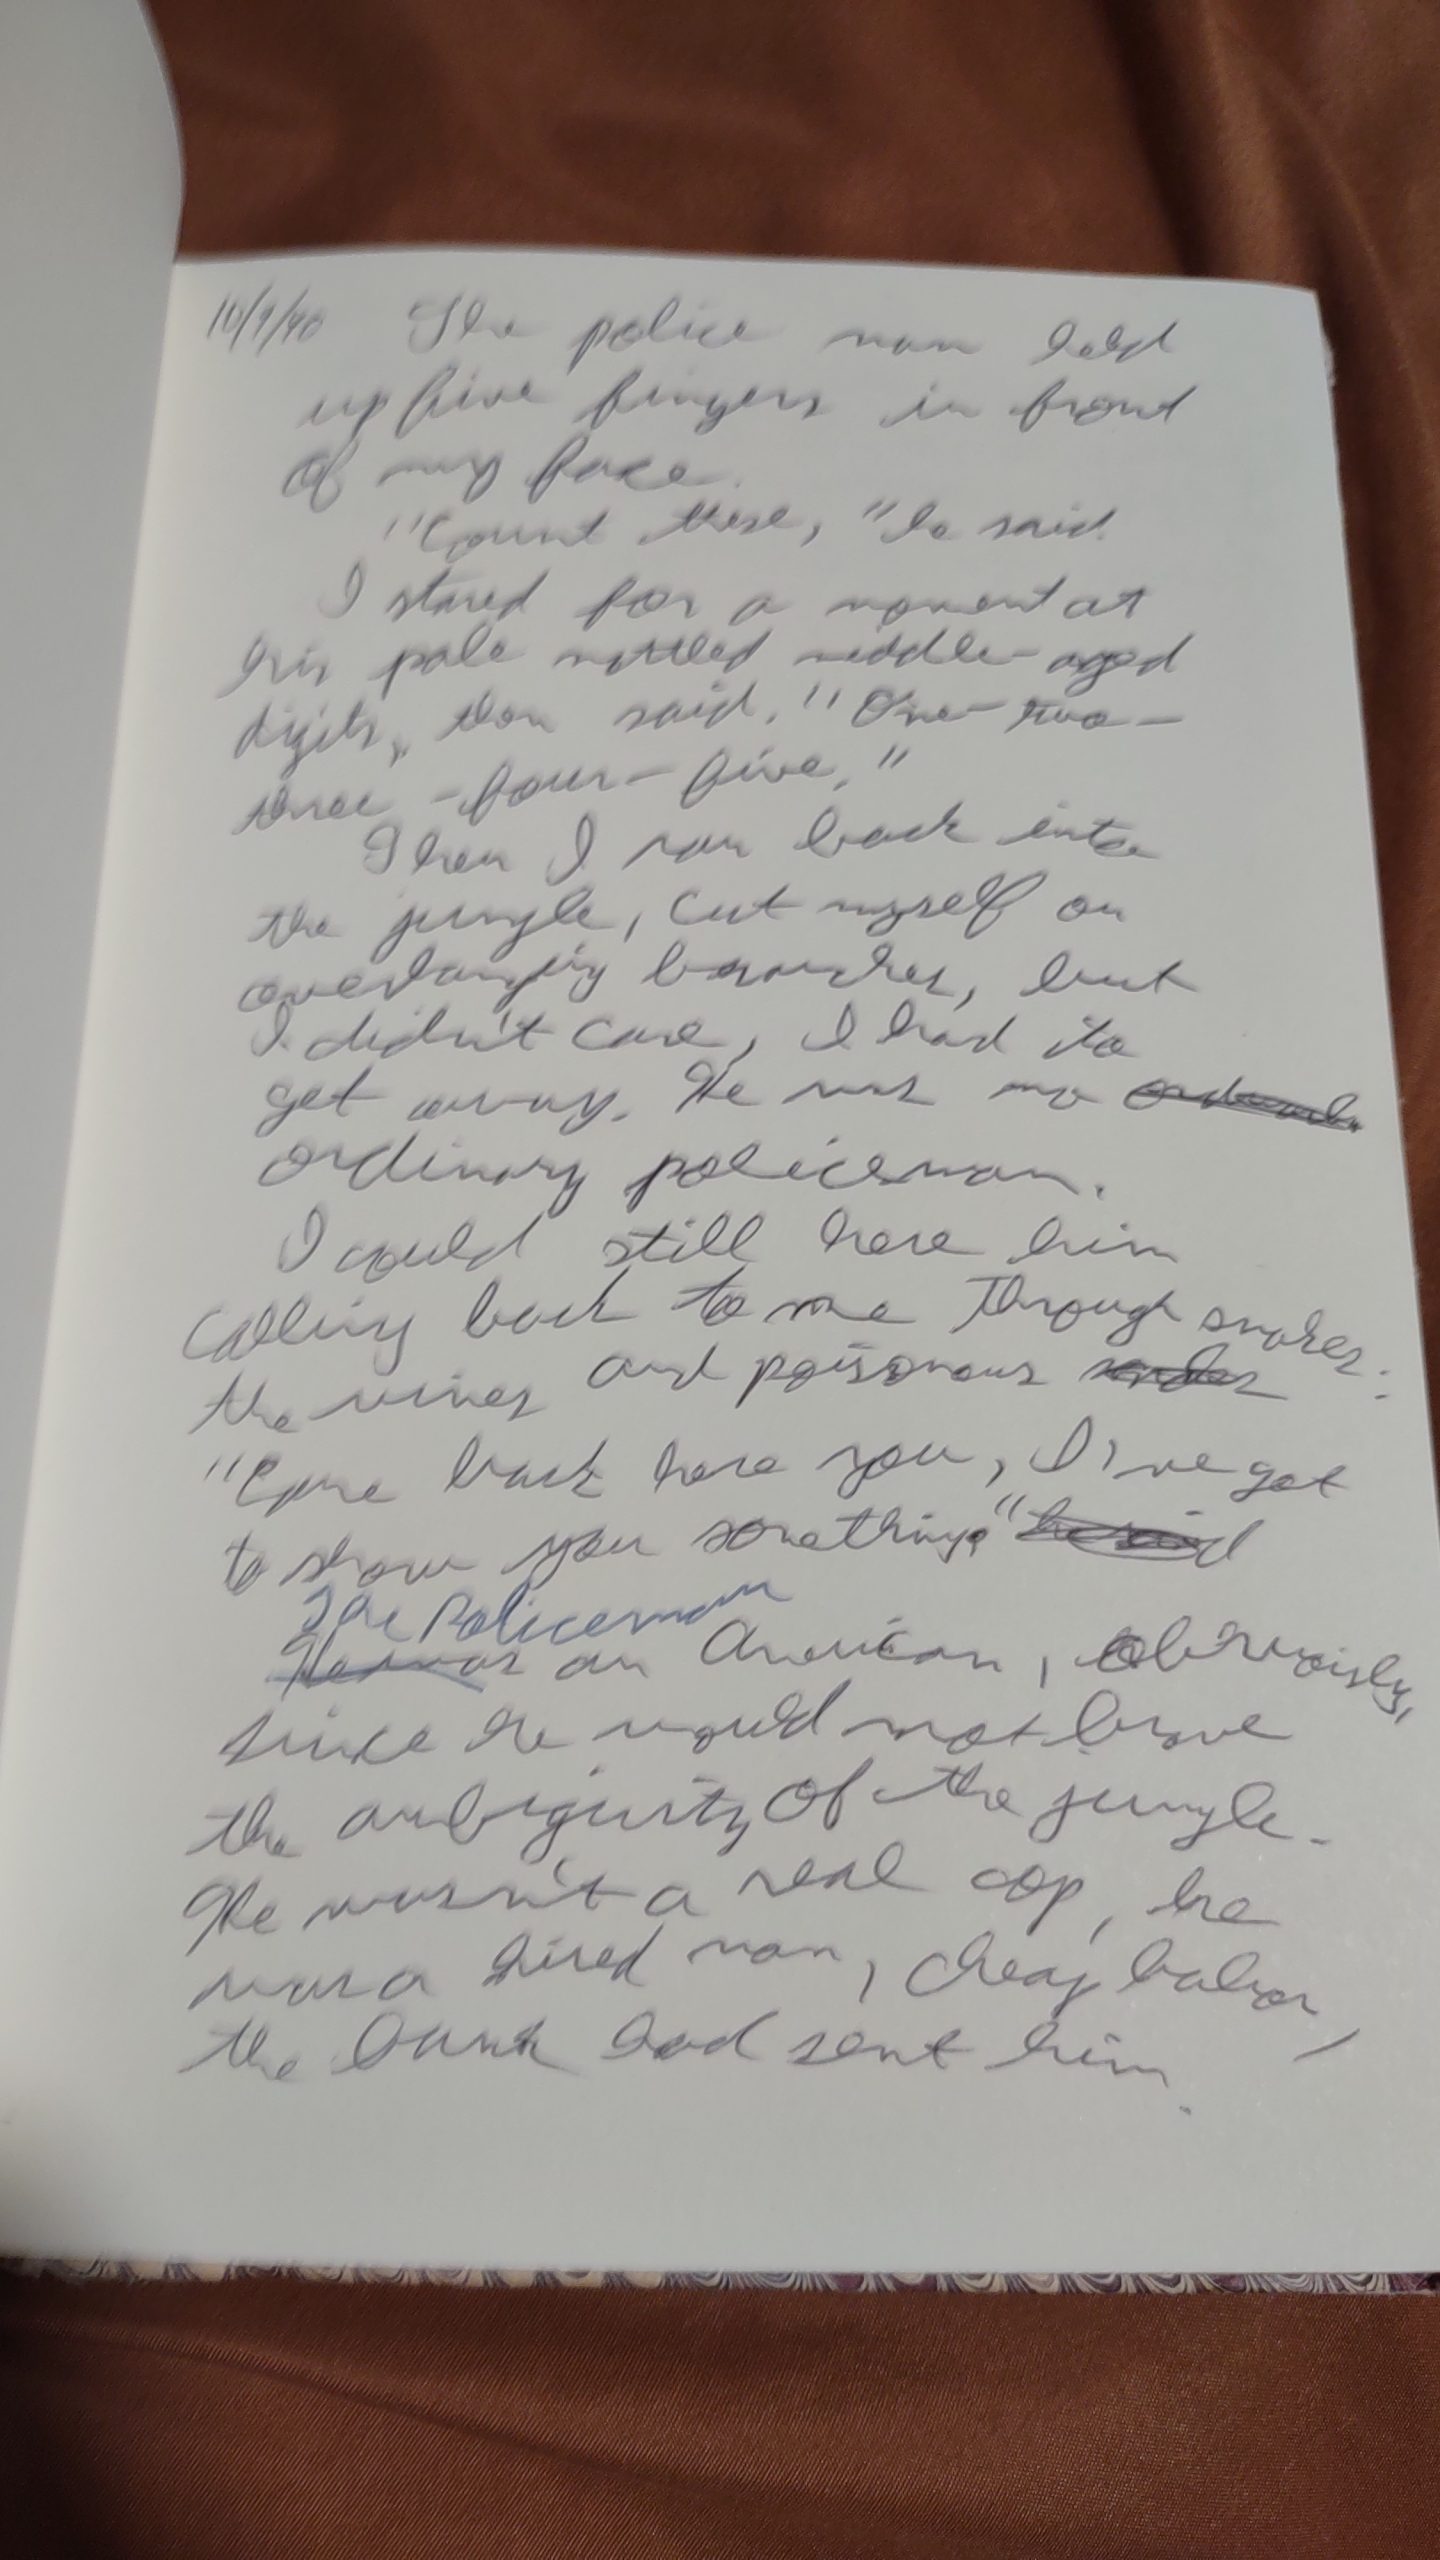 10/9/90 The police man held
up five fingers in front
of my face.
"Count these," he said.
I stared for a moment at
his pale mottled middle-aged
digits, then said. "One-two-
three-four-five."
Then I ran back into
the jungle, cut myself on
overhanging branches, but
I didn't care, I had to
get away. He was no
ordinary policeman.
I could still here him
calling back to me through
the vines and poisonous snakes:
"Come back here you, I've got
to show you something"
The Policeman
was an American, obviously,
since he would not brave
the ambiguity of the jungle.
He wasn't a real cop, he
was a hired man, cheap labor,
the bank had sent him.